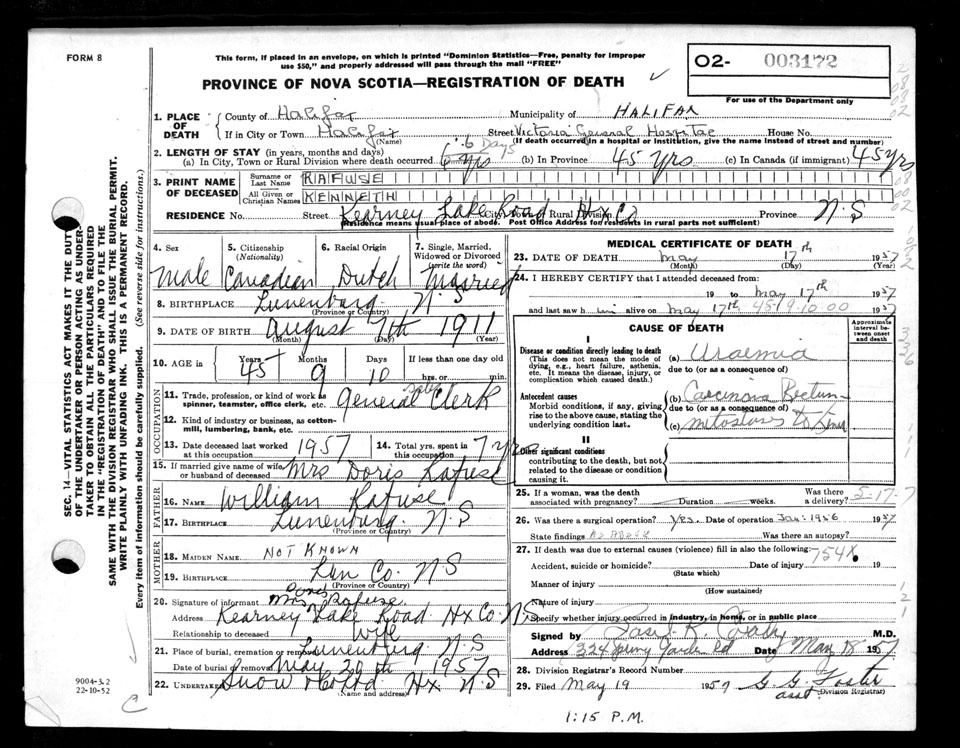 FORM 8
This form, if placed in an envelope, on which is printed "Dominion Statistics—Free, penalty for improper
use $50," and properly addressed will pass through the mail "FREE"
PROVINCE OF NOVA SCOTIA—REGISTRATION OF DEATH
O2- 003172
For use of the Department only
1. PLACE OF DEATH
County of Halifax Municipality of HALIFAX
If in City or Town Halifax Street Victoria General Hospital House No.
(Name) (If death occurred in a hospital or institution, give the name instead of street and number)
2. LENGTH OF STAY (in years, months and days) 6 Days
(a) In City, Town or Rural Division where death occurred 6 yrs (b) In Province 45 yrs (c) In Canada (if immigrant) 45 yrs
3. PRINT NAME OF DECEASED
Surname or Last Name RAFUSE
All Given or Christian Names KENNETH
RESIDENCE No. Street Kearney Lake Road City, Town or Rural Division Hx Co Province N.S
(Residence means usual place of abode. Post Office Address for residents in rural parts not sufficient)
4. Sex 5. Citizenship (Nationality) 6. Racial Origin 7. Single, Married, Widowed or Divorced (write the word)
Male Canadian Dutch Married
8. BIRTHPLACE Lunenburg N.S
(Province or Country)
9. DATE OF BIRTH August 7th 1911
(Month) (Day) (Year)
10. AGE in Years Months Days If less than one day old
45 9 10 hrs. or min.
OCCUPATION
11. Trade, profession, or kind of work as spinner, teamster, office clerk, etc. General sales Clerk
12. Kind of industry or business, as cotton-mill, lumbering, bank, etc.
13. Date deceased last worked at this occupation 1957 14. Total yrs. spent in this occupation 7 yrs
15. If married give name of wife or husband of deceased Mrs Doris Rafuse
FATHER
16. NAME William Rafuse
17. BIRTHPLACE Lunenburg N.S
(Province or Country)
MOTHER
18. MAIDEN NAME NOT KNOWN
19. BIRTHPLACE Lun Co. N S
(Province or Country)
20. Signature of informant Mrs Doris Rafuse
Address Kearney Lake Road Hx Co. N.S
Relationship to deceased Wife
21. Place of burial, cremation or removal Lunenburg N.S
Date of burial or removal May 20th 1957
22. Undertaker Snow & Co Ltd Hx. N.S
(Name and address)
MEDICAL CERTIFICATE OF DEATH
23. DATE OF DEATH May 17th 1957
(Month) (Day) (Year)
24. I HEREBY CERTIFY that I attended deceased from:
19 to May 17th 1957
and last saw h im alive on May 17th 1957
CAUSE OF DEATH
Approximate interval between onset and death
I
Disease or condition directly leading to death (a) Uraemia
(This does not mean the mode of dying, e.g., heart failure, asthenia, etc. It means the disease, injury, or complication which caused death.)
due to (or as a consequence of)
Antecedent causes (b) Carcinoma Rectum
Morbid conditions, if any, giving rise to the above cause, stating the underlying condition last.
due to (or as a consequence of)
(c)
II
Other significant conditions
contributing to the death, but not related to the disease or condition causing it.
25. If a woman, was the death associated with pregnancy? Duration weeks. Was there a delivery? 5-17-7
26. Was there a surgical operation? Yes. Date of operation Jan: 1956 1957
State findings AS ABOVE Was there an autopsy?
27. If death was due to external causes (violence) fill in also the following: 754X
Accident, suicide or homicide? Date of injury 19
(State which)
Manner of injury
(How sustained)
Nature of injury
Specify whether injury occurred in industry, in home, or in public place
Signed by M.D.
Address Date May 18 1957
28. Division Registrar's Record Number
29. Filed May 19 1957 G. G. Foster
asst. (Division Registrar)
1:15 P.M.
SEC. 14—VITAL STATISTICS ACT MAKES IT THE DUTY
OF THE UNDERTAKER OR PERSON ACTING AS UNDER-
TAKER TO OBTAIN ALL THE PARTICULARS REQUIRED
IN THE "REGISTRATION OF DEATH" AND TO FILE THE
SAME WITH THE DIVISION REGISTRAR WHO SHALL ISSUE THE BURIAL PERMIT.
WRITE PLAINLY WITH UNFADING INK. THIS IS A PERMANENT RECORD.
Every item of information should be carefully supplied. (See reverse side for instructions.)
9004-3.2
22-10-52